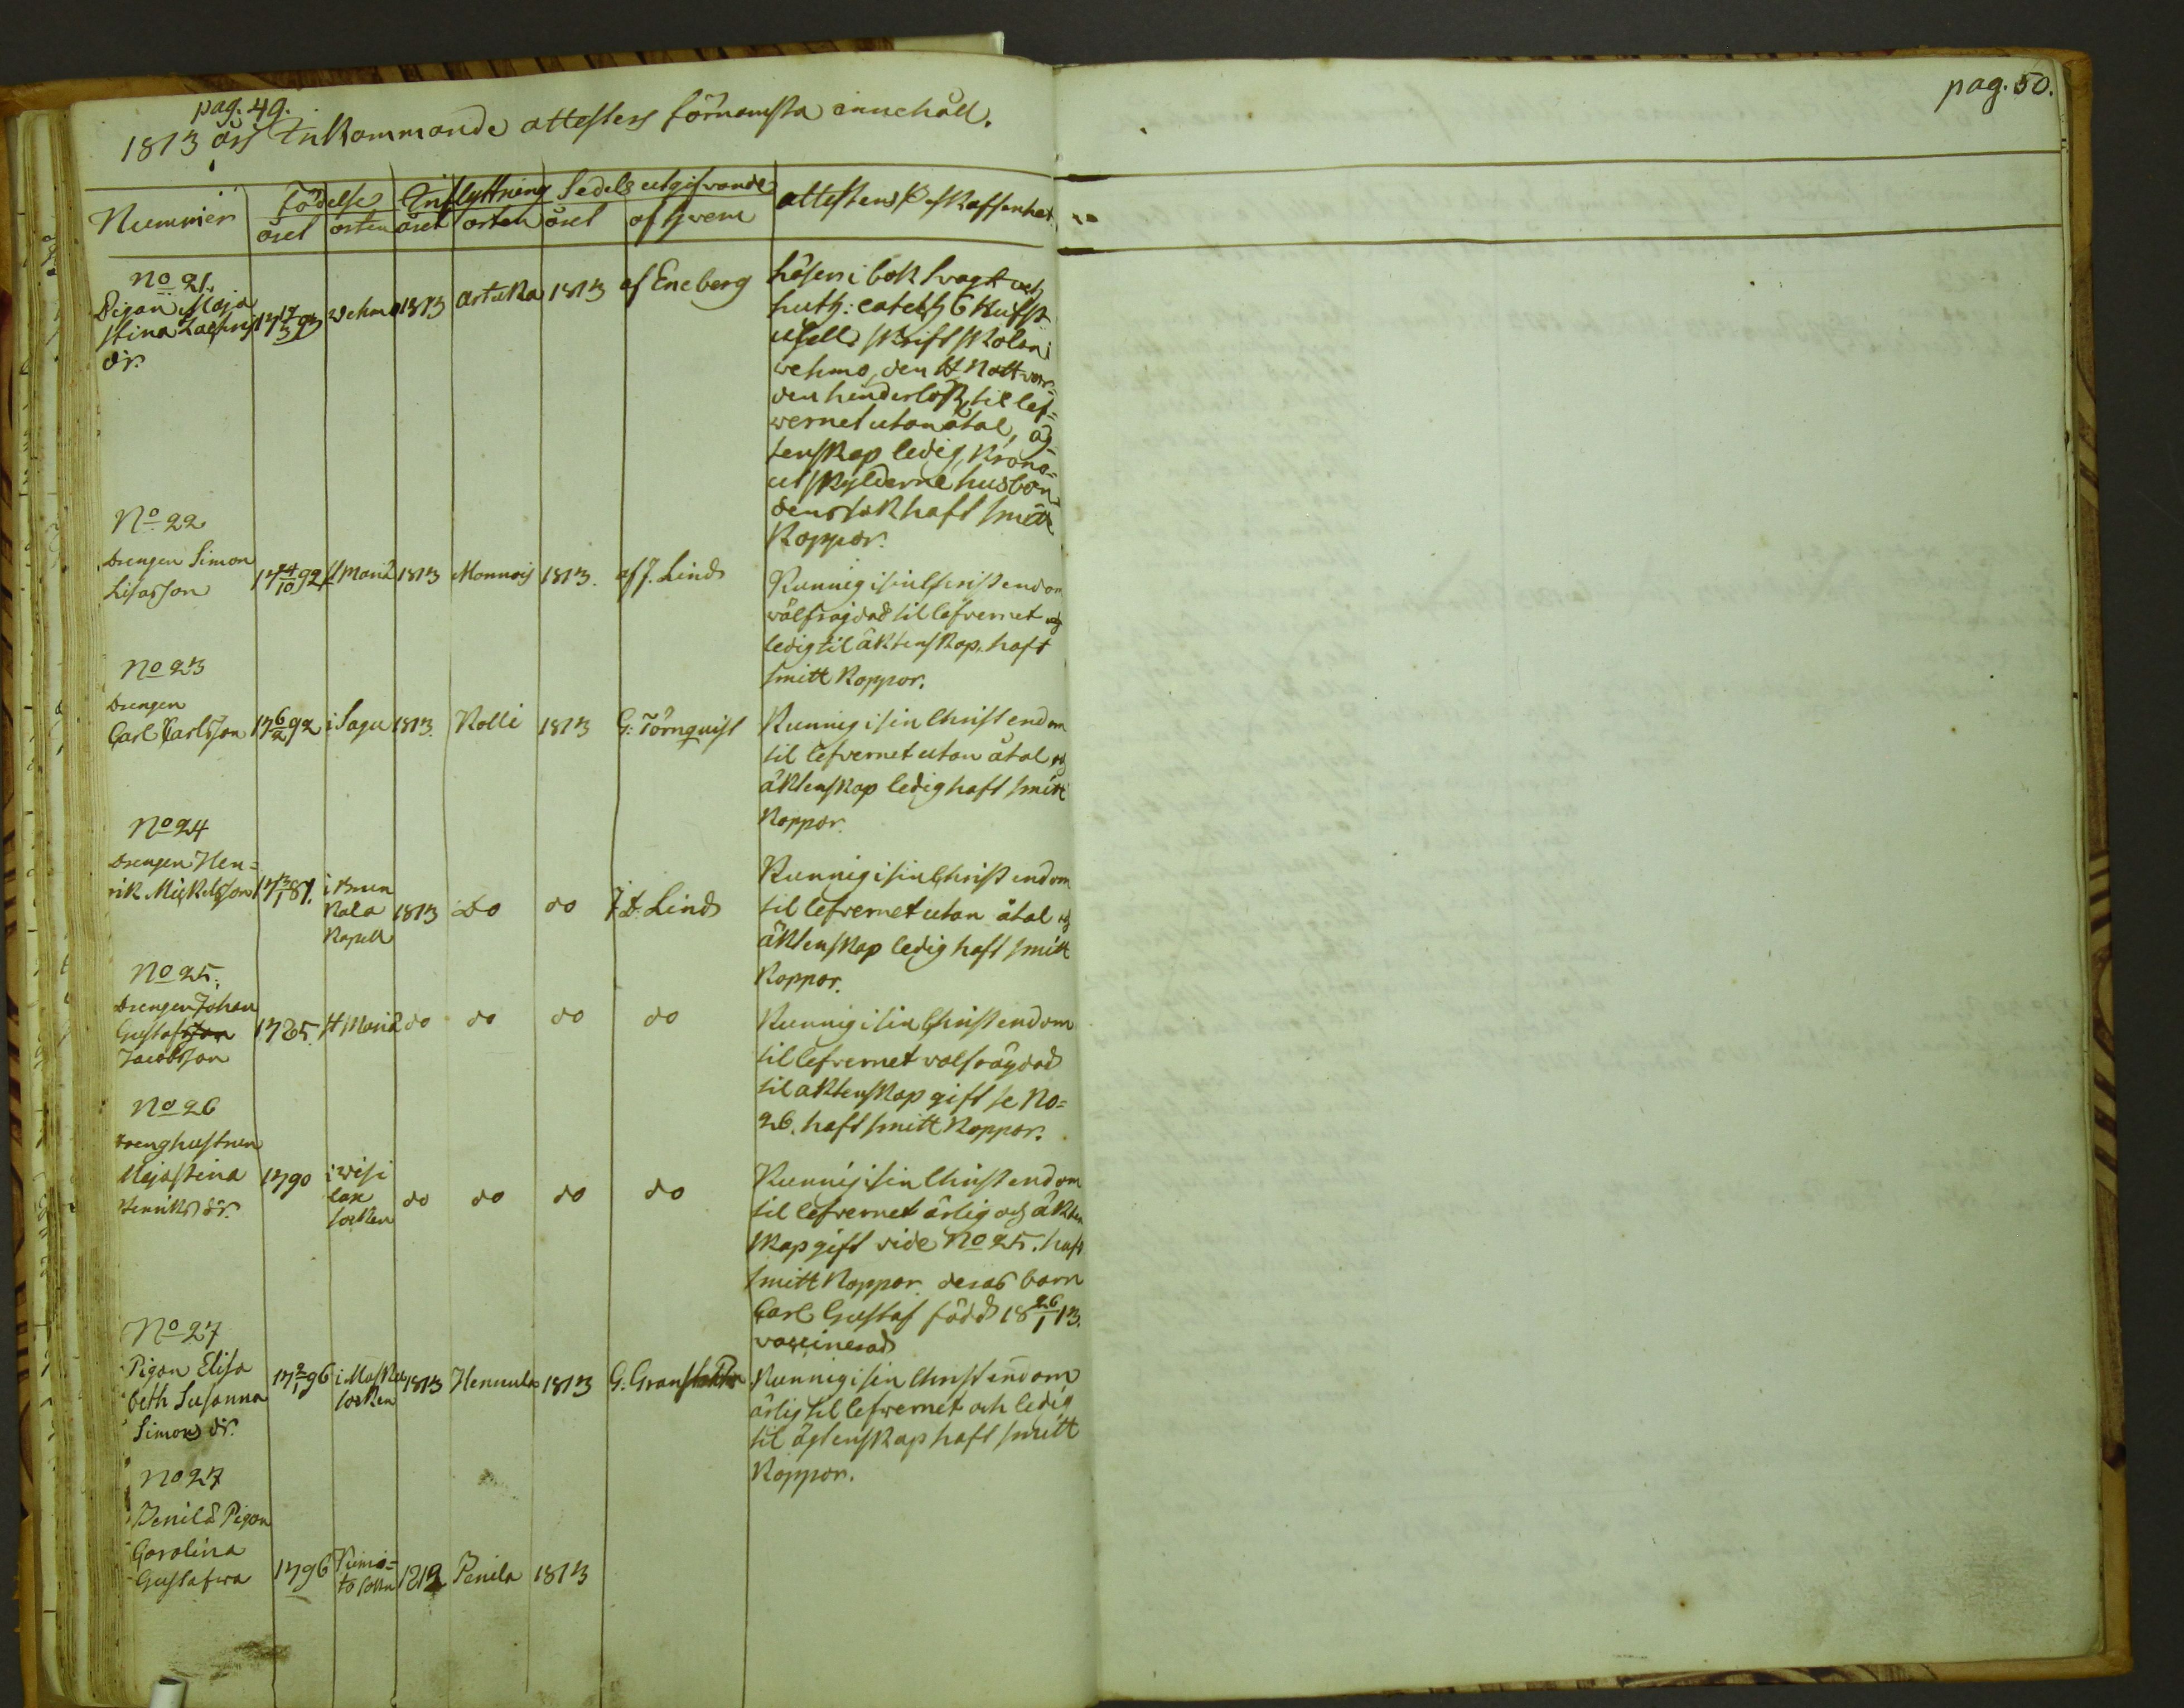 pag: 49.
1813 års Inkommande attesters förnamsta innehåll.
Nummer Födelse Inflyttning Sedels utgifvande attestens beskaffenhet
året orten året orten året af hvem
No 21.
Pigan Maja Stina Zachris dr. 17 17/3 93 Vehmo 1813 Artuka 1813 af Eneberg
läser i bok svagt och
luth: catech 6 Hufst
skrift skolan i
vehmo, den H Nattvar=
den henderlöst, til lef=
vernet utan åtal, äg=
tenskap ledig, Krono=
utskylderne husbon
dens sak haft smitt
Koppor.
No 22
Drengen Simon
Lisasson 17 24/10 92 St Mariæ 1813 Monnois 1813. af J. Lind
Kunnig i sin Christendom
välfrägdad til lefvernet och
ledig til äktenskap, haft
smitt Koppor.
No 23
Drengen
Carl Carlsson 17 6/2 92 i Sagu 1813. Kolli 1813 G: Törnquist
Kunnig i sin Christendom
til lefvernet utan åtal och
äktenskap ledig haft smitt
Koppor.
No 24
Drengen Hen=
rik Mickelsson 17 3/1 81. i Brun
Kala
Kapell 1813 Do do J. D. Lind
Kunnig i sin Christendom
til lefvernet utan åtal och
äktenskap ledig haft smitt
Koppor.
No 25.
Drengen Johan
Gustafsson
Jacobsson 1785. St Mariæ do do do do
Kunnig i sin Christendom
til lefvernet välfrägdad
til äktenskap gift se No=
26. haft smitt Koppor.
No 26
Drenghustrun
Maja Stina
Henriks dr. 1790 i Wiri
lax
socken do do do do
Kunnig i sin Christendom
til lefvernet ärlig och äkten
skap gift vide No 25. haft
smitt Koppor deras barn
Carl Gustaf född 18 26/1 13.
vaccinerad
No 27
Pigan Elisa
beth Susanna
Simons dr. 17 2/1 96 i Masku
socken 1813 Hennula 1813 G. Granstedt
Kunnig i sin Christendom
ärlig til lefvernet och ledig
til ägtenskap haft smitt
Koppor.
No 27
Penilä Pigan
Carolina
Gustafwa 1796 Kimi=
to sokn 1812 Penila 1813
pag. 50.